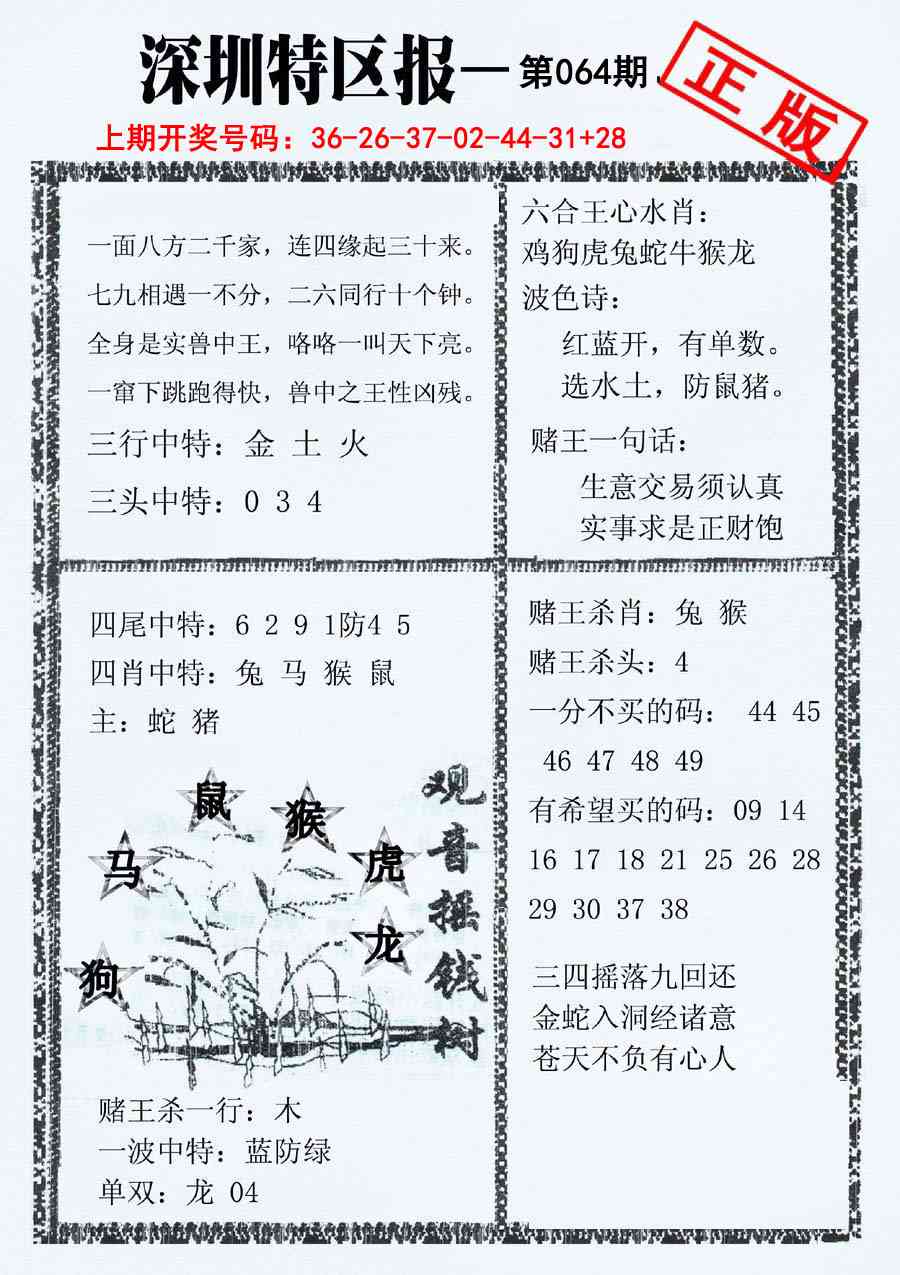 深圳特区报—第064期
正版
上期开奖号码：36-26-37-02-44-31+28
一面八方二千家，连四缘起三十来。
七九相遇一不分，二六同行十个钟。
全身是实兽中王，咯咯一叫天下亮。
一窜下跳跑得快，兽中之王性凶残。
三行中特：金 土 火
三头中特：0 3 4
六合王心水肖：
鸡狗虎兔蛇牛猴龙
波色诗：
红蓝开，有单数。
选水土，防鼠猪。
赌王一句话：
生意交易须认真
实事求是正财饱
四尾中特：6 2 9 1防4 5
四肖中特：兔 马 猴 鼠
主：蛇 猪
鼠
猴
马
虎
龙
狗
观音摇钱树
赌王杀一行：木
一波中特：蓝防绿
单双：龙 04
赌王杀肖：兔 猴
赌王杀头：4
一分不买的码： 44 45
46 47 48 49
有希望买的码：09 14
16 17 18 21 25 26 28
29 30 37 38
三四摇落九回还
金蛇入洞经诸意
苍天不负有心人